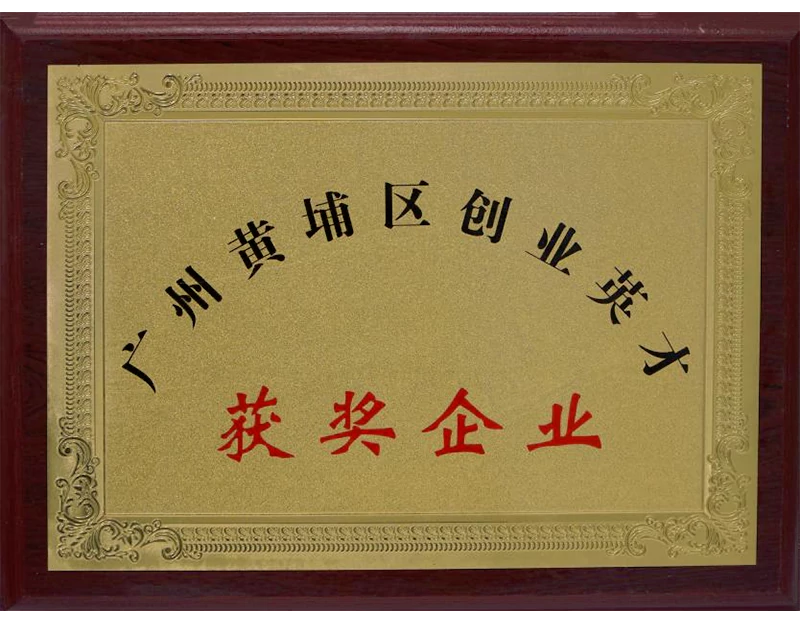 广州黄埔区创业英才
获奖企业